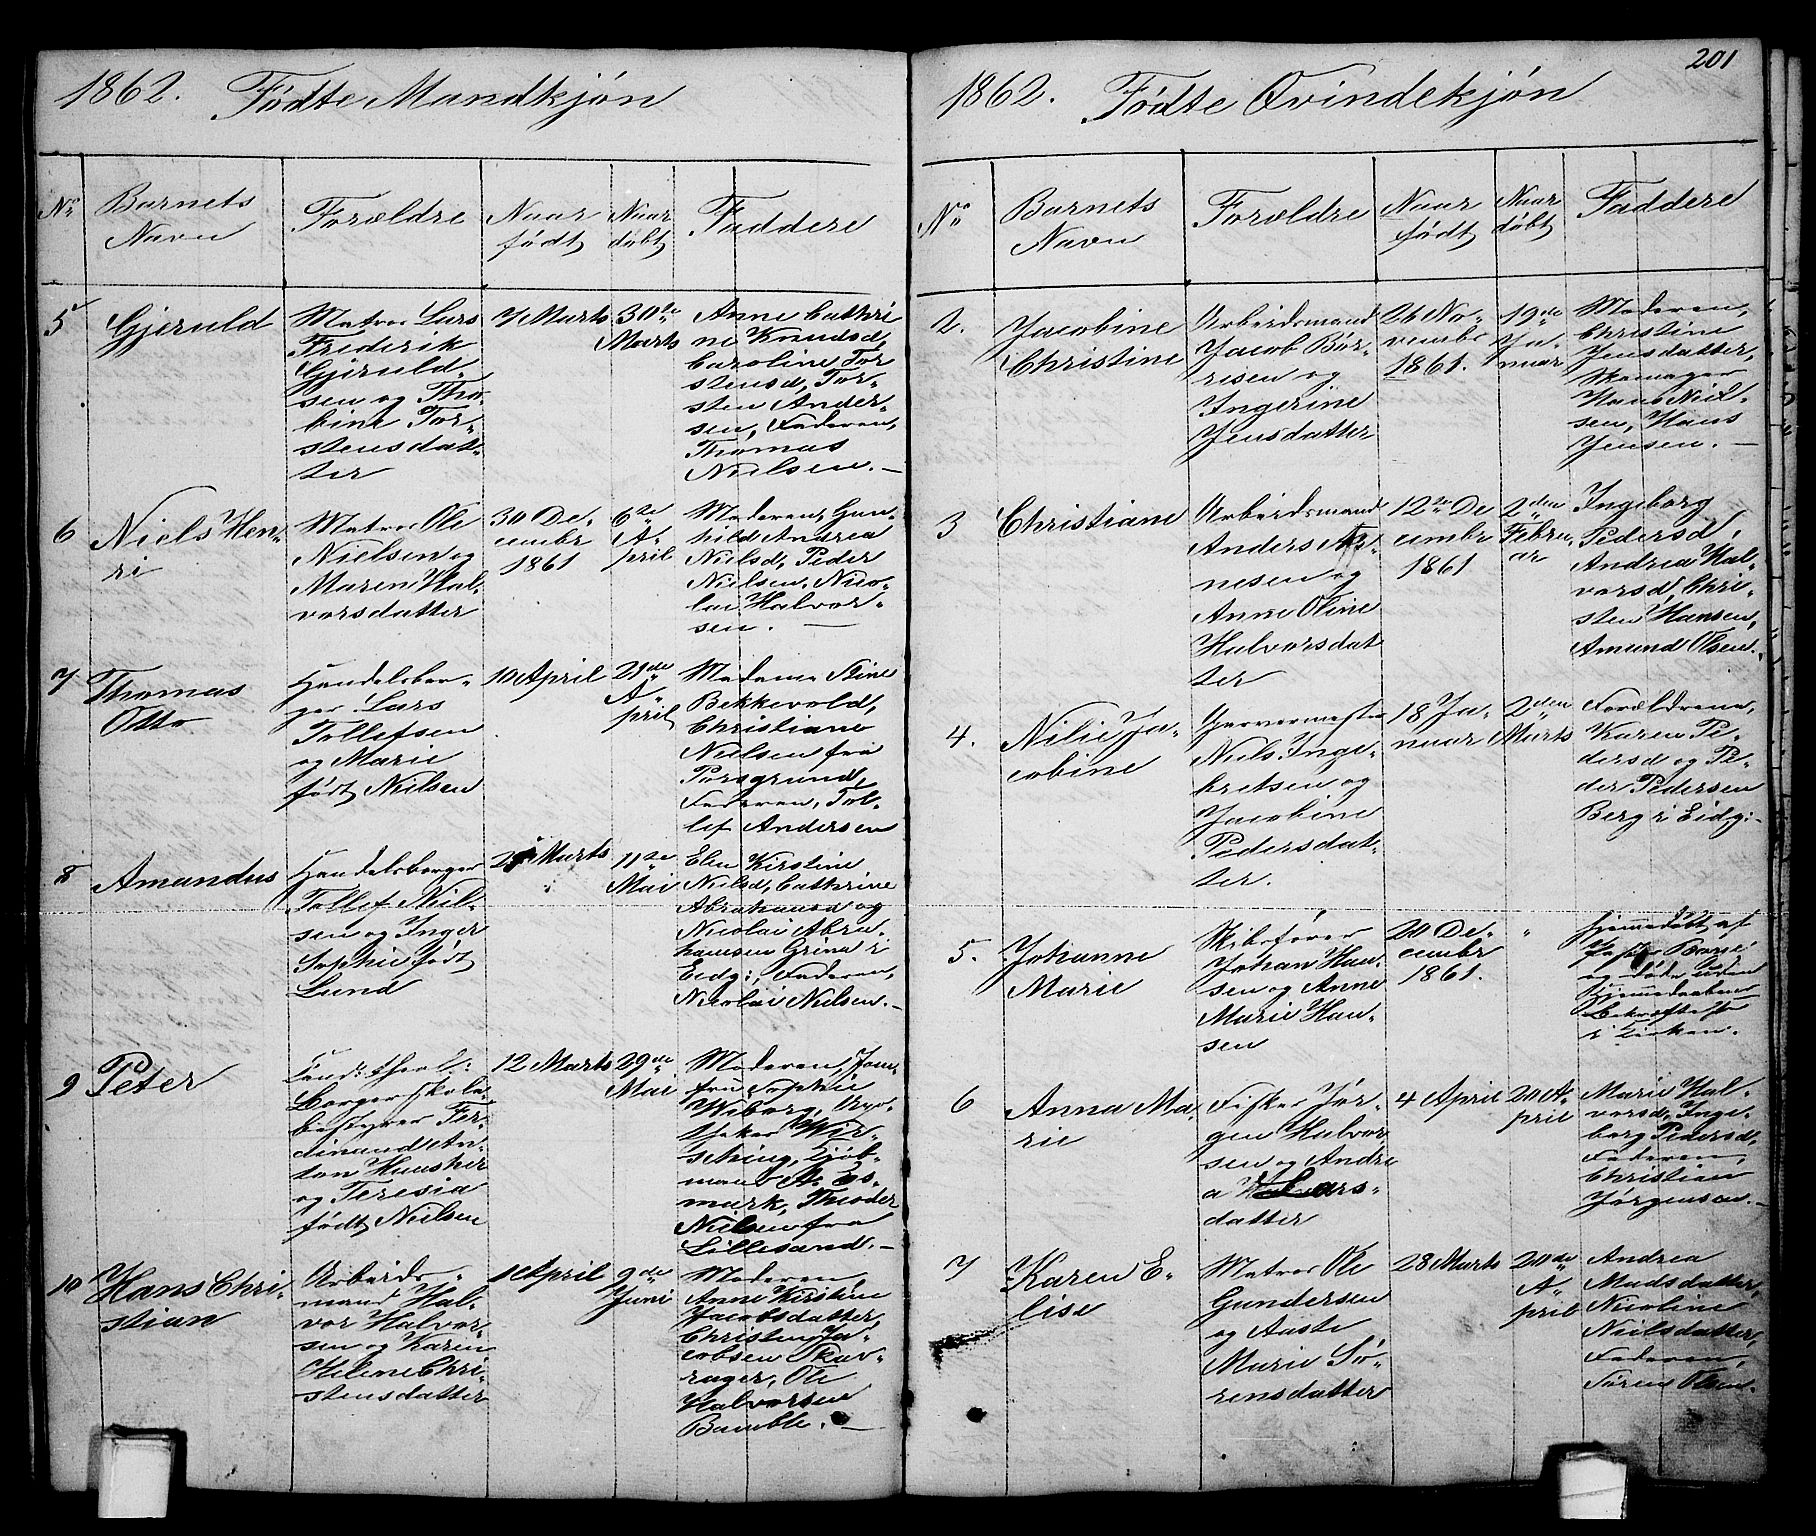 1862. Fødte Mandkjøn
No
Barnets
Navn
Forældre
Naar
født
Naar
døbt
Faddere
5
Gjeruld
Matros Lars
Frederik
Gjeruld-
sen og Tho-
bine Tor-
stensdat-
ter
7 Marts
30te
Marts
Anne Cathri
ne Knudsd,
Caroline Tor
stensd, Tor-
sten Ander-
sen, Faderen,
Thomas
Nielsen. —
6
Niels Hen-
ri
Matros Ole
Nielsen og
Maren Hal-
vorsdatter
30 De-
cembr
1861
6te
A-
pril
Moderen, Gun-
hild Andrea
Nielsd, Peder
Nielsen, Nico-
lai Halvor-
sen. —
7
Thomas
Otto
Handelsbor-
ger Lars
Tollefsen
og Marie
født Nielsen
10 April
21de
A-
pril
Madame Stine
Bekkevold,
Christiane
Nielsen fra
Porsgrund,
Faderen, Tol-
lef Andersen
8
Amandus
Handelsborger
Tollef Niel-
sen og Inger
Sophie født
Lund
Marts
11te
Mai
Elen Kirstine
Nielsd, Cathrine
Abrahamsd og
Nicolai Abra-
hamsen Grina i
Eidg:, Faderen,
Nicolai Nielsen. —
9
Peter
Cand: theol:
Borgerskole-
bestyrer Fer-
dinand An-
ton
og Teresia
født Nielsen
12 Marts
29de
Mai
Moderen, Jom-
fru Sophie
Wiborg, Apo-
theker Wir-
sching, Kjøb-
mand A. Es-
mark, Theoder
Nielsen fra
Lillesand. —
10
Hans Chri-
stian
Arbeids-
mand Hal-
vor Halvor-
sen og Karen
Helene Chri-
stensdatter
1 April
9de
Juni
Moderen,
Anne Kirstine
Jacobsdatter,
Christen Ja-
cobsen Skav-
rager, Ole
Halvorsen
Bamble. —
201
1862. Fødte Qvindekjøn
No
Barnets
Navn
Forældre
Naar
født
Naar
døbt
Faddere
2.
Jacobine
Christine
Arbeidsmand
Jacob Bør-
resen og
Ingerine
Jensdatter
26 No-
vembr
1861.
19de
Ja-
nuar
Moderen,
Christine
Jensdatter,
Skomager
Hans Niel-
sen, Hans
Jensen. —
3
Christiane
Arbeidsmand
Anders Ar-
nesen og
Anne Oline
Halvorsdat
ter
12te De
cembr
1861
2den
Febru-
ar
Ingeborg
Pedersd,
Andrea Hal-
vorsd, Chri-
sten Hansen,
Amund Olsen.
4.
Nilie Ja-
cobine
Garvermester
Niels Inge-
bretsen og
Jacobine
Pedersdat-
ter.
18 Ja-
nuar
2den
Marts
Forældrene,
Karen Pe-
dersd og Pe-
der Pedersen
Berg i Eidg:
5.
Johanne
Marie
Skibsfører
Johan Han-
sen og Anne
Marie Han-
sen
20 De-
cembr
1861.
"
hjemmedøbt af
og døde uden
Hjemmedaaben
Bekræftelse
i Kirken.
6
Anna Ma-
rie
Fisker Jør-
gen Halvor
sen og Andre
a Halvors-
datter
4 April
20 A-
pril
Marie Hal-
vorsd, Inge-
borg Pedersd,
Faderen,
Christian
Jørgensen. —
7
Karen E-
lise
Matros Ole
Gundersen
og Aaste
Marie Sø-
rensdatter
28 Marts
20de
A-
pril
Andrea
Madsdatter,
Nicoline
Nielsdatter,
Faderen,
Søren Olsen.